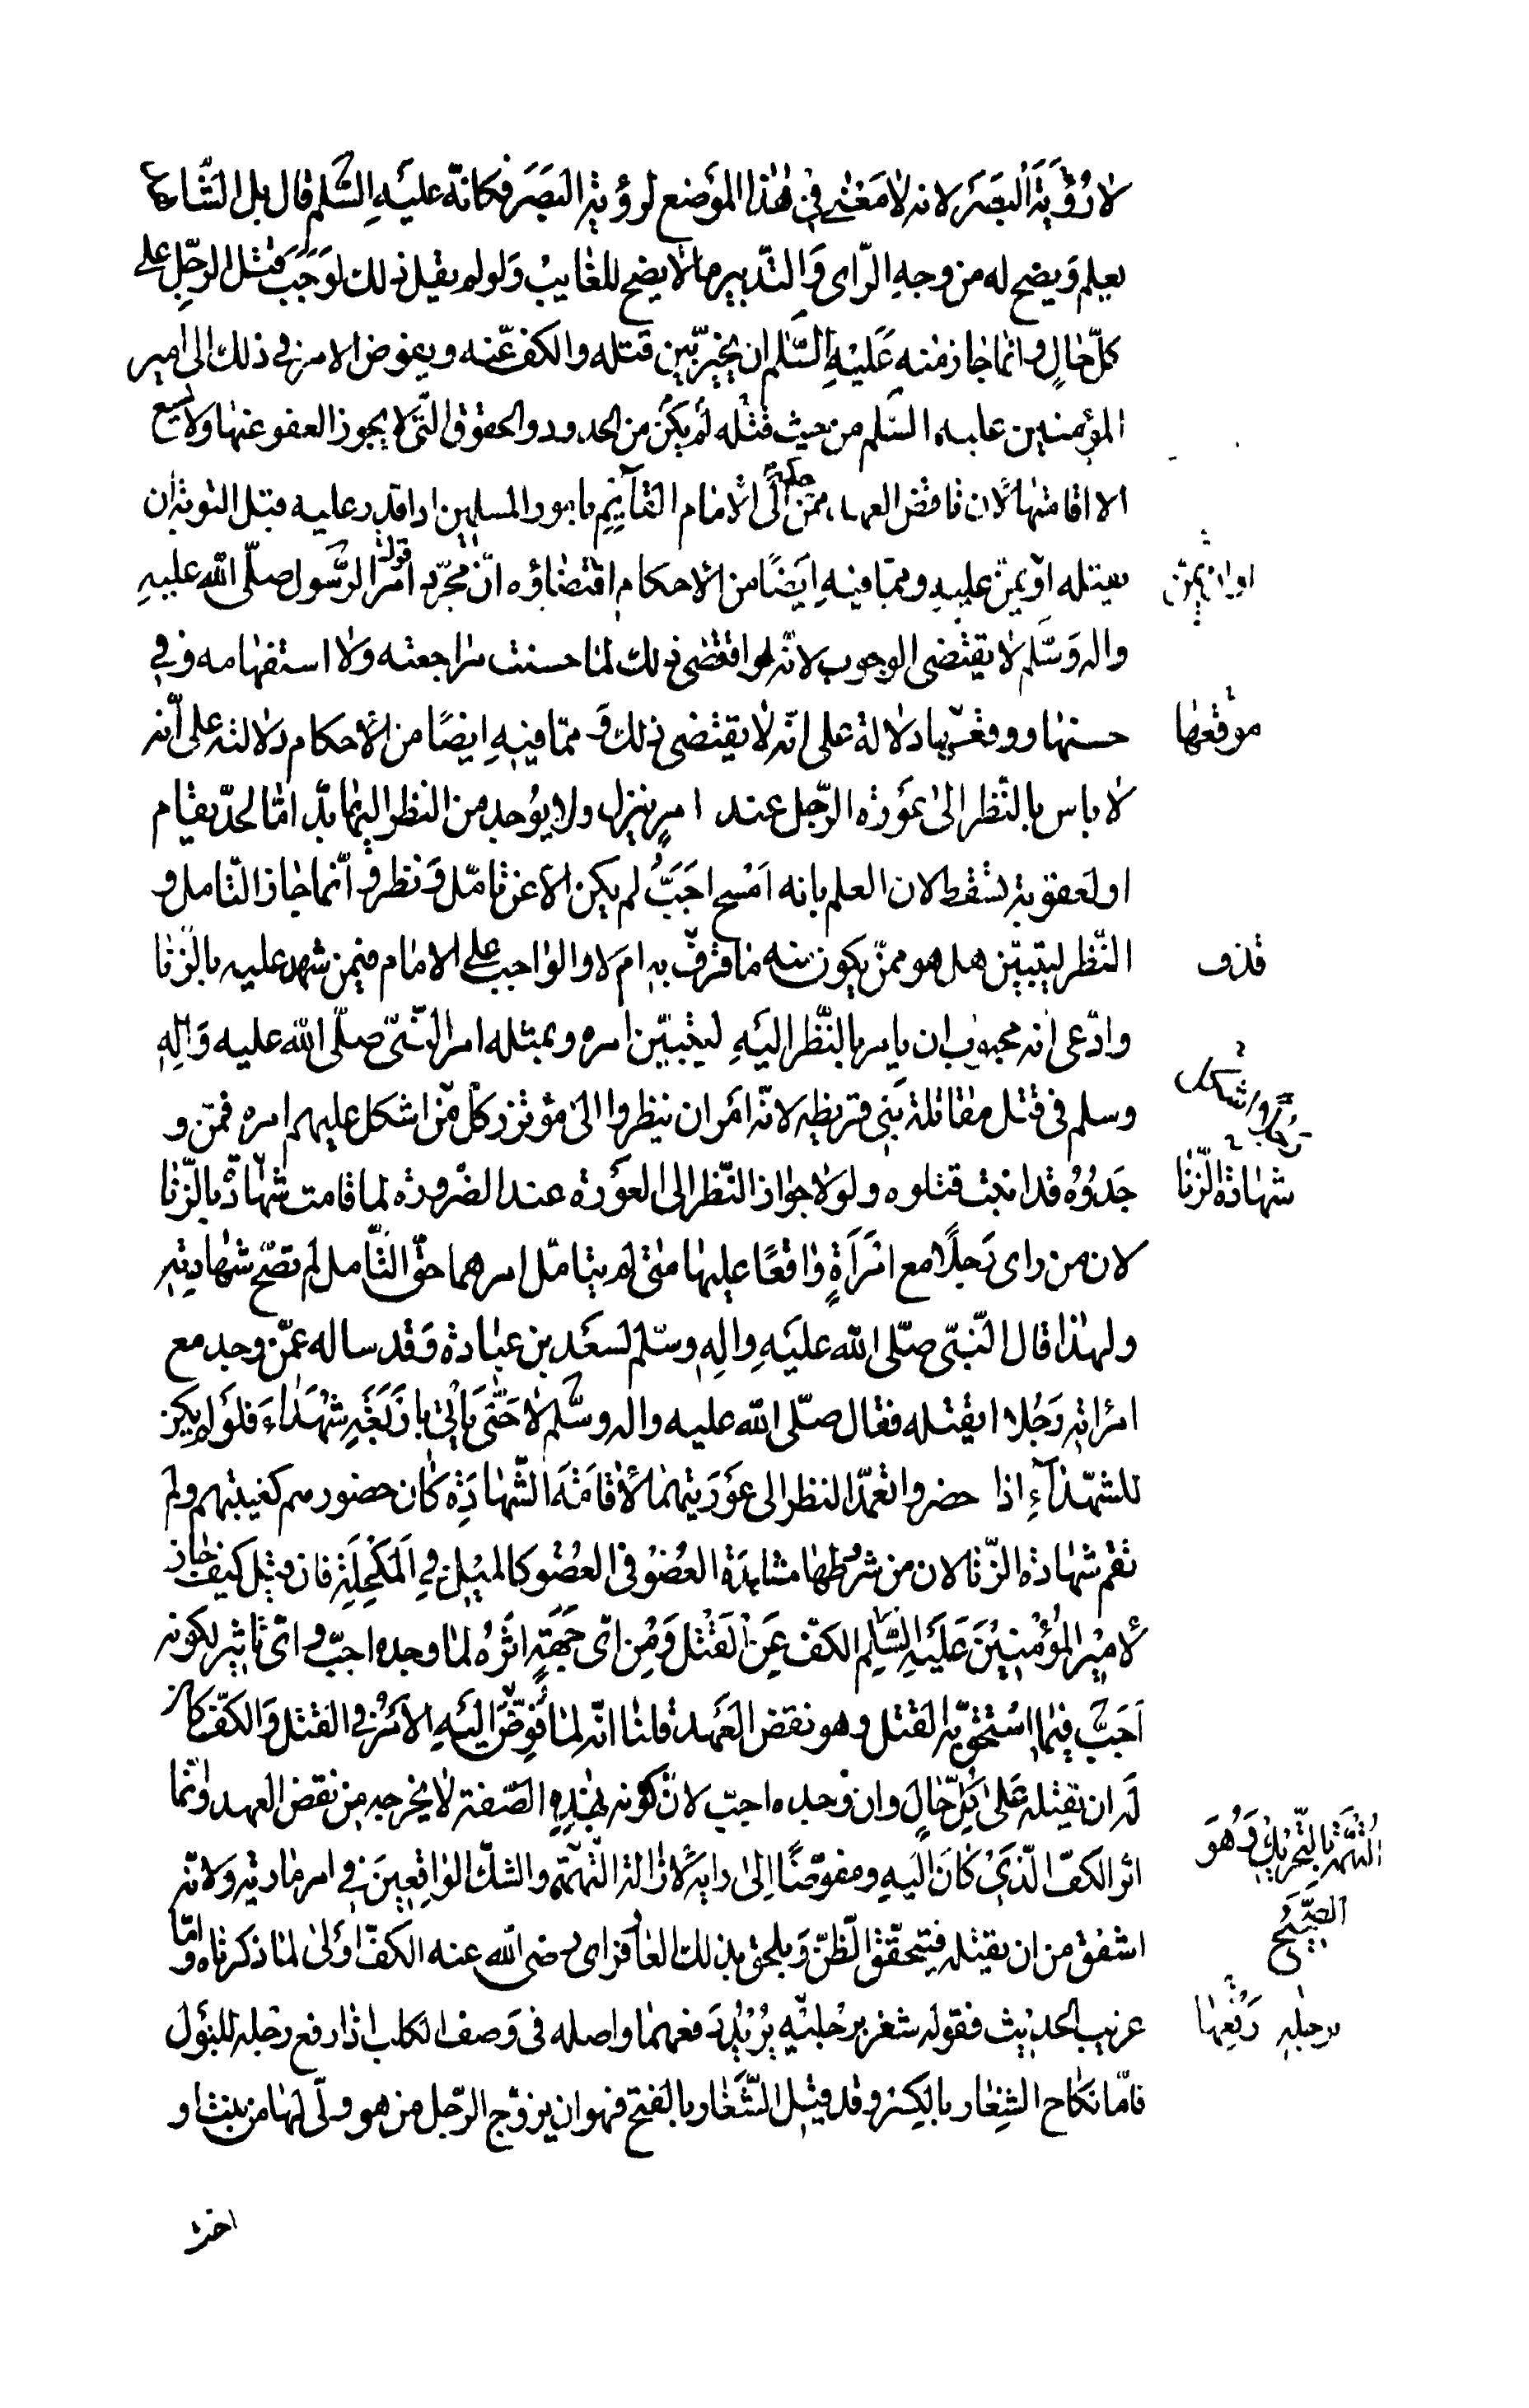 لا رُؤْيَة البَصَر لانه لا مَعْنٰى فى هٰذا المَوْضع لرؤية البَصَر فكانّه عليَهِ السَّلم قال بل الشّاهد
يعلم وَيضح له من وجهِ الرّاى وَالتّدبير ما لا يضح للغايب وَلو لم يقل ذلك لوَجَبَ قتل الرجّلِ على
كلّ حٰالٍ وانما جٰاز منه عَلَيْهِ السَّلم ان يخيّر بَين قتله والكف عنه ويفوض الامر فى ذلك الى امير
المؤمنين عليه السّلم من حيث قتله لَم يَكن من الحدود والحقوق الّتى لا يجوز العفو عنها ولا يَسَع
الا اقامتها لان ناقض العهد ممّن حكمه الى الامام القآئِمِ بامور المسلمين اذا قدر عليه قبل التوبة ان
يقتله اَو يمنّ عليه وممّا فيهِ اَيضًا من الاحكام اقتضاؤه انّ مجرّد قوله امر الرسّول صلّى الله عليهِ
او ان يمن
واله وَسَّلم لا يقتضى الوجوب لانّه لو اقتضى ذلك لما حسنت مراجعته وَلا استفهامه وَفى
حسنها ووقعها دلالة على انّه لا يقتضى ذلك وَ ممّا فيهِ ايضًا من الاحكام دلالته على اَنّه
موقعها
لا باس بالنّظر الى عَوْرة الرّجل عند امرٍ ينزل ولا يوُجد من النظر اليها بدّ امّا لحدّ يقام
او لعقوبة تسقط لان العلم بانه اَمْسح اَجَبُّ لم يكن الا عن تامّل وَنظر وَ اَنّما جٰاز التامل و
النّظر ليتبيّن هل هو ممّن يكون منه ما قرف به ام لا والواجب على الامام فيمن شهد عليه بالزنا
قذف
وادّعى انه مجبوب ان يامر بالنّظر اليَهِ ليتبيّن امره وبمثله امر النّبىّ صلّى الله عليه وَآلِهِ
وسلم فى قتل مقاتلة بَنى قريظه لانّه امَر ان ينظروا الى مؤتزر كلّ من اشكل عليهم امره فمن و
جَدوُهُ قد انبت قتلوه ولو لا جواز النّظر الى العَوْرة عند الضّرورة لما قامت شهادة بالزنا
شهادة الزّنا
لان من راى رَجلًا مع امْرَاَةٍ واقعًا عليها متى لم يتامّل امرهما حقّ التّامل لَم تصحّ شهادته
ولهذا قال النّبىّ صلّى الله عليَهِ والِهِ وسلّم لسعَد بن عبادة وَقد ساله عمّن وجد مع
امرأته رَجُلا ايقتله فقال صلّى الله عليه واله وسَّلم لا حَتّى يَاْتى بِاَرْبَعَةِ شُهَدآءَ فلَو لم يكن
للشهّدآءِ اذا حضروا تعمّد النظر الى عَوْرَتيهما لاقامَة الشّهادَةِ كان حضورهم كغيبتهم ولم
تقم شهادة الزّنا لان من شَرْطها مشاهدَة العُضْوُ فى العُضْو كالميل فى المَكْحِلَةِ فان قيل كيف جاز
لامير المؤمنين عَلَيَهِ السّلِم الكفّ عَن القَتْل وَمِن اى جَهَةٍ اثرُهُ لما وجده اجبّ و اىّ تاثير لكونه
اَجَبَّ فيما استحقّ به القتل وهو نقض العَهد قلنا انّه لما فوّضَ اليَهِ الاَمْرُ فى القتل وَالكفّ كان
لَه ان يقتله عَلى كلّ حٰالٍ وان وجده اجبّ لانّ كونه بهذِهِ الصّفة لا يخرجه من نقض العهد وانّما
اثر الكفّ الّذى كانَ اليَهِ ومفوّضًا اِلى رايه لازالة التّهمة والشكّ الواقِعين فى امر مارية ولانّه
التُّهَمَة بالتّحريك وَهُوَ
الصَّحيِحُ
اشفق من ان يقتله فيتحقّق الظّنّ وَيلحق بذلك العار فراى رضى الله عنه الكفّ اَولى لما ذكرناه وَامّا
غريب الحديث فقوله شغر برجْليْه يُريُد رفعهما واصله فى وَصف الكلب اذا رفع رجله للبَوْل
برجليه رَفعها
فامّا نكاح الشِغار بالكسر وقد قيل الشّغار بالفتح فهو ان يزوّج الرّجل من هو ولىّ لها من بنت او
اخت